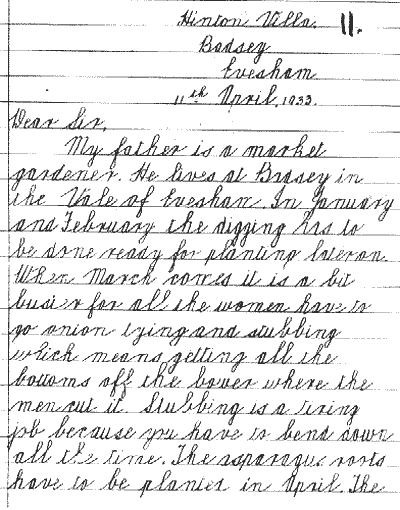 Hinton Villa. 11.
Badsey
Evesham
11th April, 1933.
Dear Sir,
My father is a market
gardener. He lives at Badsey in
the Vale of Evesham. In January
and February the digging has to
be done ready for planting later on.
When March comes it is a bit
busier for all the women have to
go onion tying and stubbing
which means getting all the
bottoms off the bower where the
men cut it. Stubbing is a tiring
job because you have to bend down
all the time. The asparagus roots
have to be planted in April. The